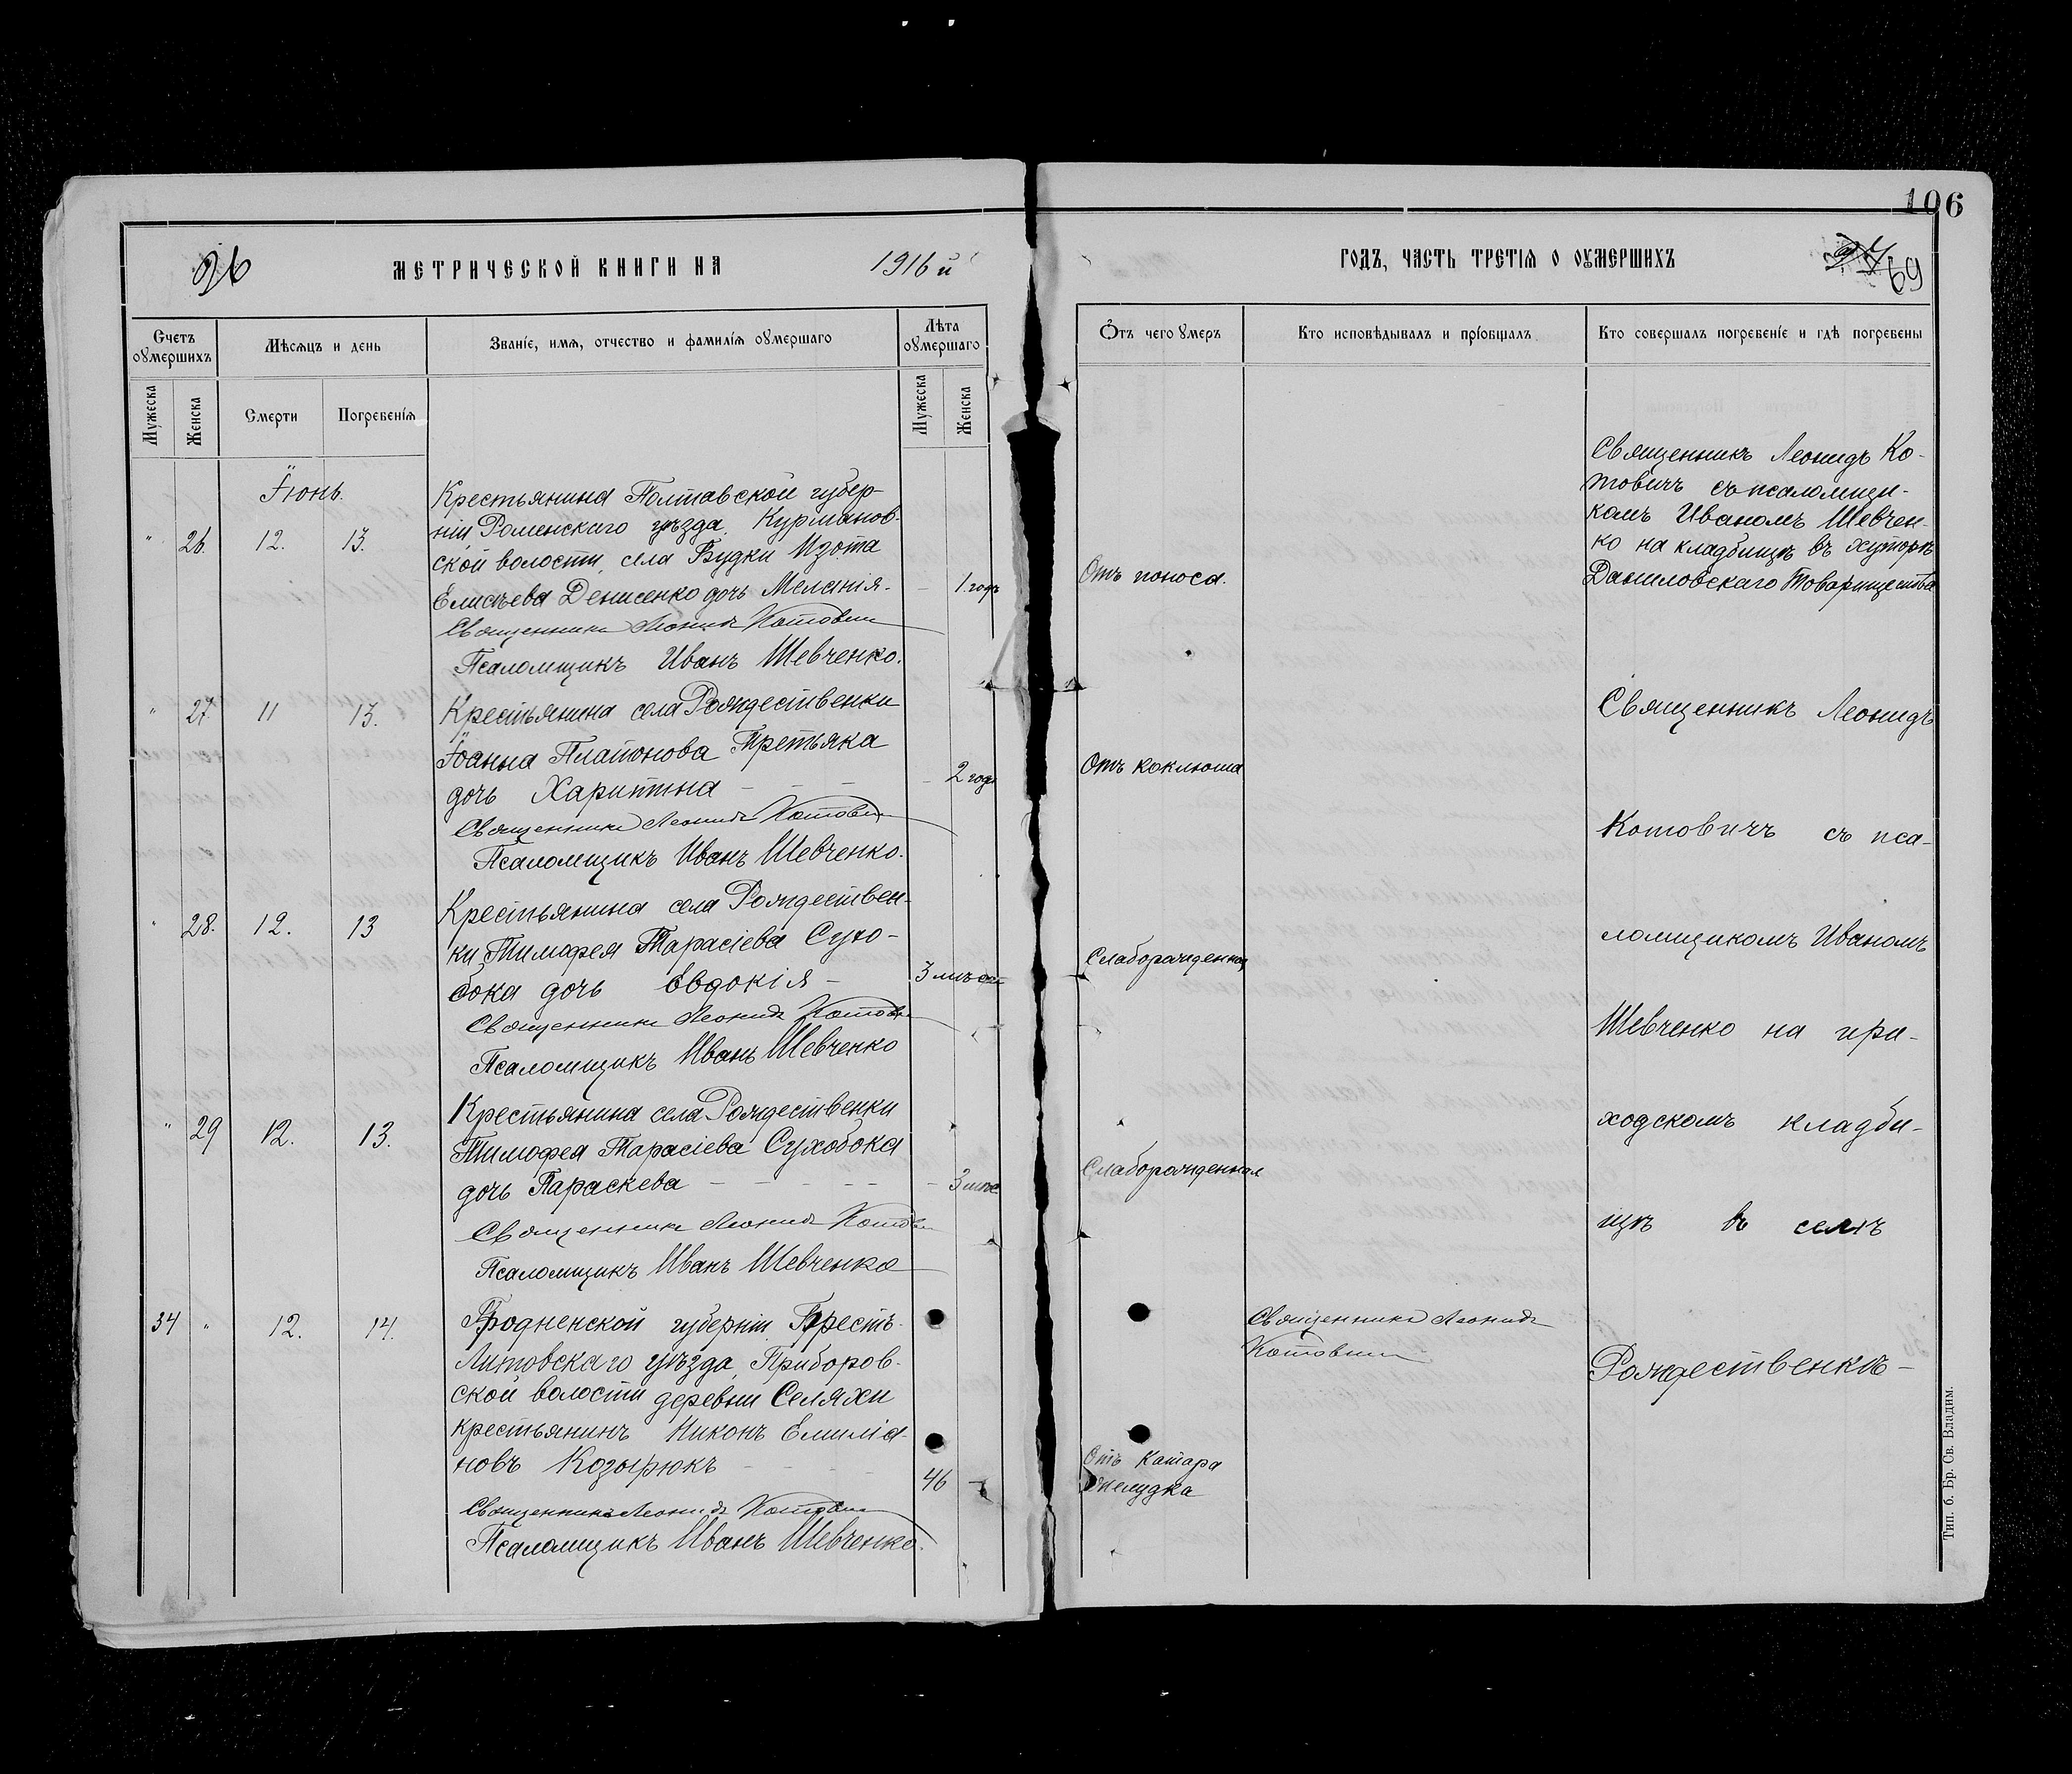 106
96
МЕТРИЧЕСКОЙ КНИГИ НА
1916 й
Счетъ оумершихъ
Мѣсяцъ и день
Званіе, имя, отчество и фамилія оумершаго
Лѣта оумершаго
Мужеска
Женска
Смерти
Погребенія
Мужеска
Женска
Іюнь.
" 26. 12. 13.
Крестьянина Полтавской губер-
ніи Роменскаго уѣзда, Курманов-
ской волости, села Будки Изота
Елисѣева Денисенко дочь Меланія. – 1. годъ
Священникъ Леонидъ Котович
Псаломщикъ Иванъ Шевченко.
" 27. 11 13.
Крестьянина села Рождественки
Іоанна Платонова Третьяка
дочь Харитина – – – – 2 года
Священникъ Леонидъ Котович
Псаломщикъ Иванъ Шевченко.
" 28. 12. 13
Крестьянина села Рождествен-
ки Тимофея Тарасіева Сухо-
бока дочь Евдокія –
Священникъ Леонидъ Котович
Псаломщикъ Иванъ Шевченко
" 29 12. 13.
Крестьянина села Рождественки
Тимофея Тарасіева Сухобока
дочь Параскева – – – – –
Священникъ Леонидъ Котович
Псаломщикъ Иванъ Шевченко
34 " 12. 14.
Гродненской губерніи. Брестъ-
Литовскаго уѣзда, Приборов-
ской волости деревни Селяхи
крестьянинъ Никонъ Емиліа-
новъ Козырюкъ – – – – 46 –
Священникъ Леонидъ Котович
Псаломщикъ Иванъ Шевченко.
ГОДЪ, ЧАСТЬ ТРЕТІЯ О ОУМЕРШИХЪ
69
Отъ чего умеръ
Кто исповѣдывалъ и пріобщалъ
Кто совершалъ погребеніе и гдѣ погребены
Священникъ Леонидъ Ко-
товичъ съ псаломщи-
комъ Иваномъ Шевчен-
ко на кладбищѣ въ хуторѣ
Даниловскаго Товарищества
Отъ поноса.
Священникъ Леонидъ
Отъ коклюша
Котовичъ съ пса-
ломщикомъ Иваномъ
Слаборожденная
Шевченко на при-
ходскомъ кладби-
Слаборожденная
щѣ въ селѣ
Священникъ Леонидъ
Котович
Рождественкѣ –
Отъ катара
желудка
Тип. б. Бр. Св. Владим.